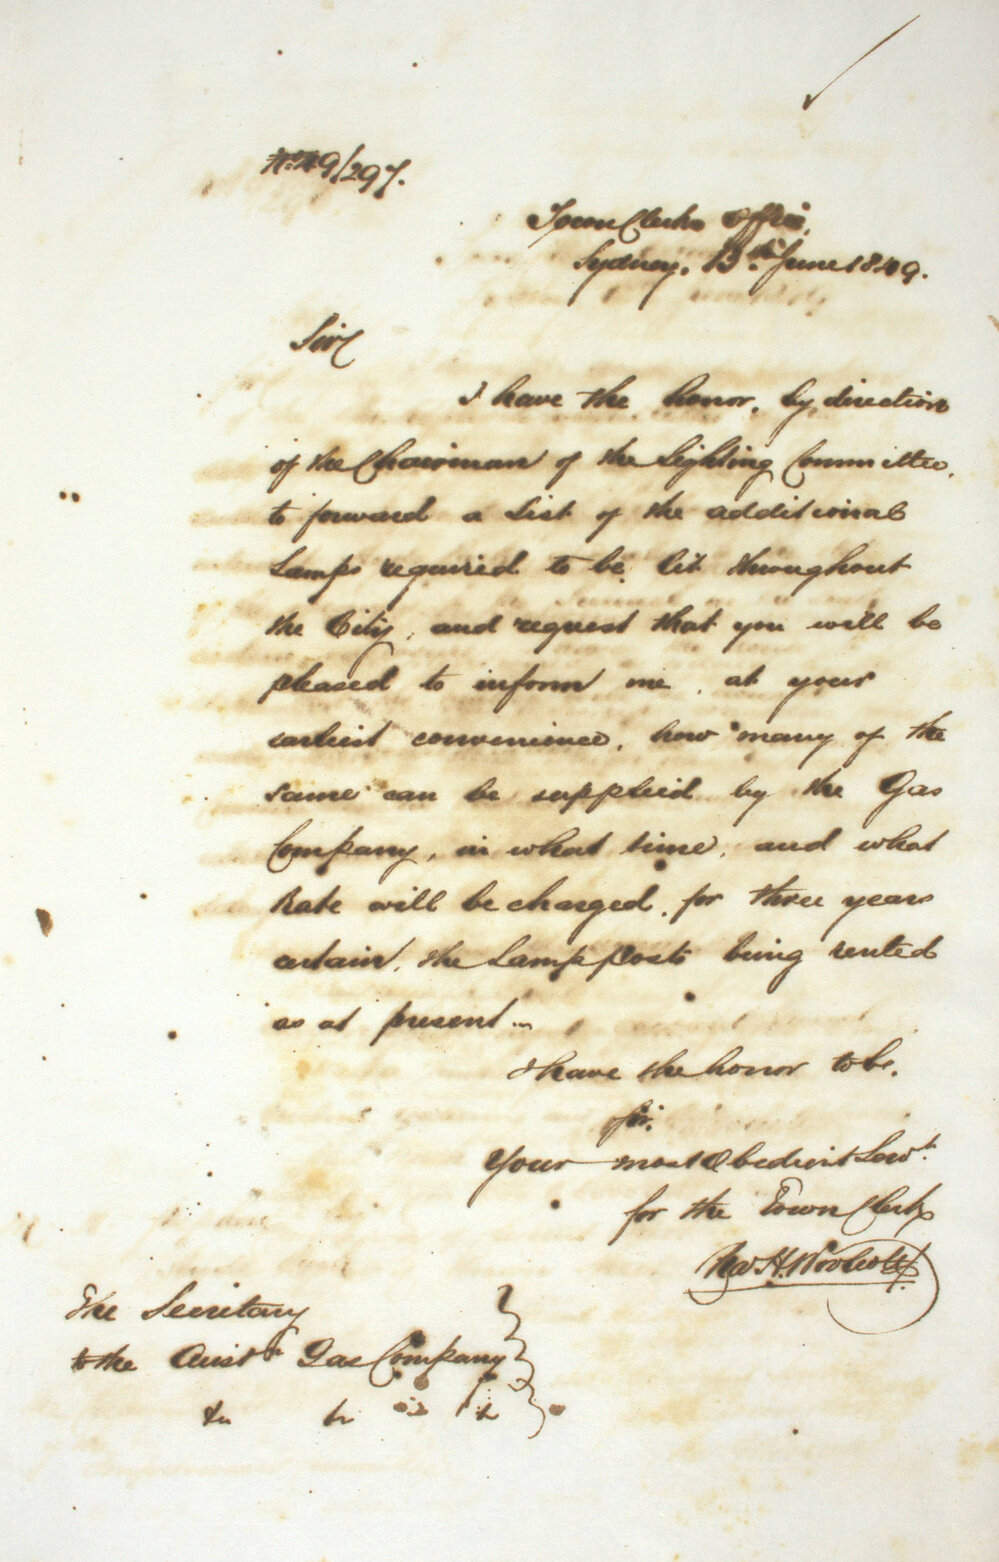 No. 49/297.
Town Clerks Office,
Sydney. 13th June 1849.
Sir
I have the honor, by direction
of the Chairman of the Lighting Committee,
to forward a List of the additional
Lamps required to be lit throughout
the City, and request that you will be
pleased to inform me, at your
earliest convenience, how many of the
same can be supplied by the Gas
Company, in what time, and what
Rate will be charged, for three years
certain, the Lamp posts being rented
as at present
I have the honor to be,
Sir,
Your most Obedient Servt.
for the Town Clerk
H. Woolcott
The Secretary
to the Austn Gas Company